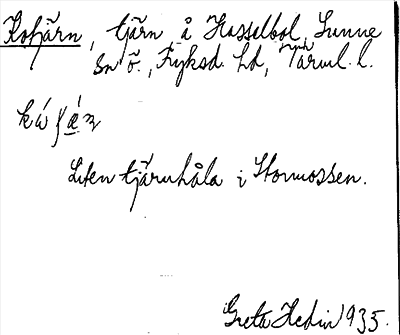 Kotjärn, tjärn å Hasselbol, Sunne
sn ö., Fryksd. hd, Värml. l.
Liten tjärnhåla i Stormossen.
Greta Hedin 1935.